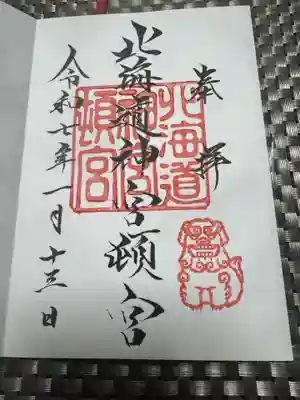 奉拝
北海道神宮頓宮
令和七年一月十三日
北海道
頓宮